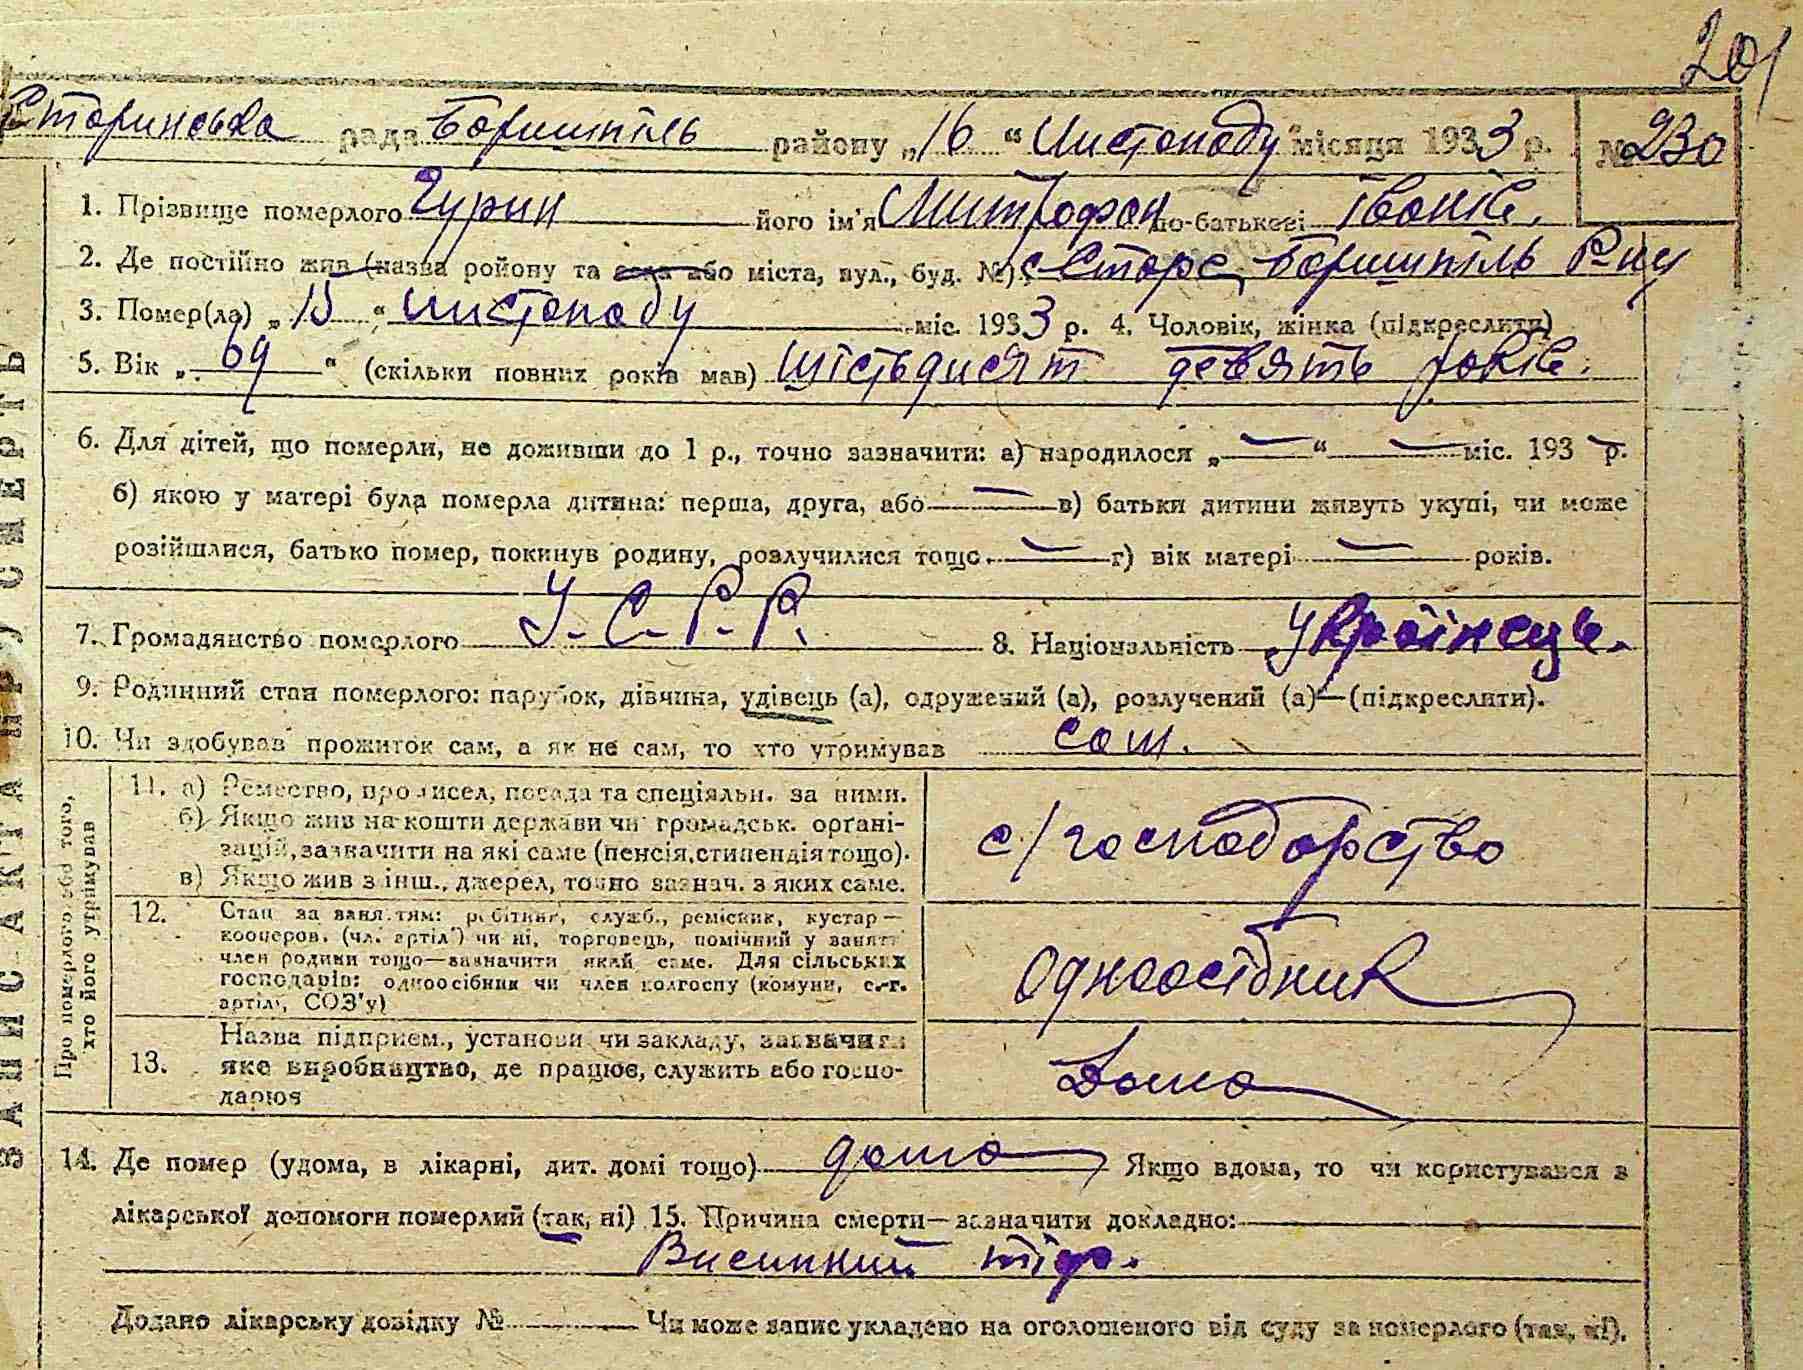 201
Старинська рада Бориспіль району „16“ Листопаду місяця 1933 р. № 230
1. Прізвище померлого Гурин його ім'я Митрофан по-батькові Іванів.
2. Де постійно жив (назва ройону та села або міста, вул., буд. №) с. Старе, Бориспіль Р-ну
3. Помер(ла) „15“ Листопаду міс. 1933 р. 4. Чоловік, жінка (підкреслити)
5. Вік „69“ (скільки повних років мав) шістьдисят девять років.
6. Для дітей, що померли, не доживши до 1 р., точно зазначити: а) народилося „—“ — міс. 193 — р.
б) якою у матері була померла дитина: перша, друга, або — в) батьки дитини живуть укупі, чи може
розійшлися, батько помер, покинув родину, розлучилися тощо — г) вік матері — років.
7. Громадянство померлого У.С.Р.Р. 8. Національність Українець.
9. Родинний стан померлого: парубок, дівчина, удівець (а), одружений (а), розлучений (а)—(підкреслити).
10. Чи здобував прожиток сам, а як не сам, то хто утримував сам.
Про померлого або того, хто його утримував
11. а) Ремество, промисел, посада та спеціяльн. за ними.
б) Якщо жив на кошти держави чи громадськ. органі-
зацій, зазначити на які саме (пенсія, стипендія тощо).
в) Якщо жив з інш., джерел, точно зазнач. з яких саме.
с/господарство
12. Стан за заняттям: робітник, служб., ремісник, кустар—
кооперов. (чл. артіл) чи ні, торговець, помічний у занятт
член родини тощо—зазначити який саме. Для сільських
господарів: одноосібник чи член колгоспу (комуни, с.-г.
артілі, СОЗ'у)
Одноосібник
13. Назва підприєм., установи чи закладу, зазначити
яке виробництво, де працює, служить або госпо-
дарює
Дома
14. Де помер (удома, в лікарні, дит. домі тощо) дома Якщо вдома, то чи користувався з
лікарської допомоги померлий (так, ні) 15. Причина смерти—зазначити докладно:
Висипний тіф.
Додано лікарську довідку № Чи може запис укладено на оголошеного від суду за померлого (так, ні).
ЗАПИС АКТА ПРО СМЕРТЬ